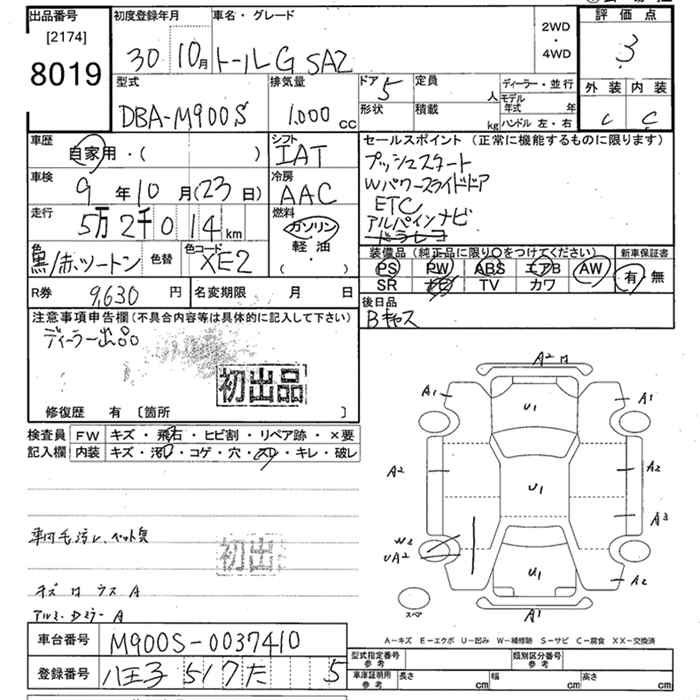 出品番号 初度登録年月 車名・グレード 2WD・4WD 評価点
[2174]
8019
30 10月 トールG SA2 3
外装 内装
C C
型式 排気量 ドア 定員 ディーラー・並行
DBA-M900S 1,000 cc 5 人 モデル年式 年
形状 積載 kg ハンドル 左・右
車歴 自家用・( ) シフト IAT
セールスポイント (正常に機能するものに限ります)
プッシュスタート
Wパワースライドドア
ETC
アルパインナビ
車検 9年10月(23日) 冷房 AAC
走行 5万2千014km 燃料 ガソリン
軽油
・( )
色 黒/赤ツートン 色替 色コード XE2
装備品 (純正品に限り○をつけてください) 新車保証書
PS PW ABS エアB AW 有 無
SR ナビ TV カワ
R券 9,630円 名変期限 月 日
後日品
Bキャス
注意事項申告欄(不具合内容等は具体的に記入して下さい)
ディーラー出品
初出品
修復歴 有 〔箇所 〕
検査員 FW キズ・飛石・ヒビ割・リペア跡・×要
記入欄 内装 キズ・汚レ・コゲ・穴・スレ・キレ・破レ
A2
A1 U1 A1
A2 U1 A2
A3
W2
UA2 U1 A2
A1
スペア
初出
A-キズ E-エクボ U-凹み W-補修跡 S-サビ C-腐食 XX-交換済
車台番号 M900S-0037410
型式指定番号 参考 類別区分番号 参考
登録番号 八王子 517 た 5
車庫証明用 参考 長さ cm 幅 cm 高さ cm